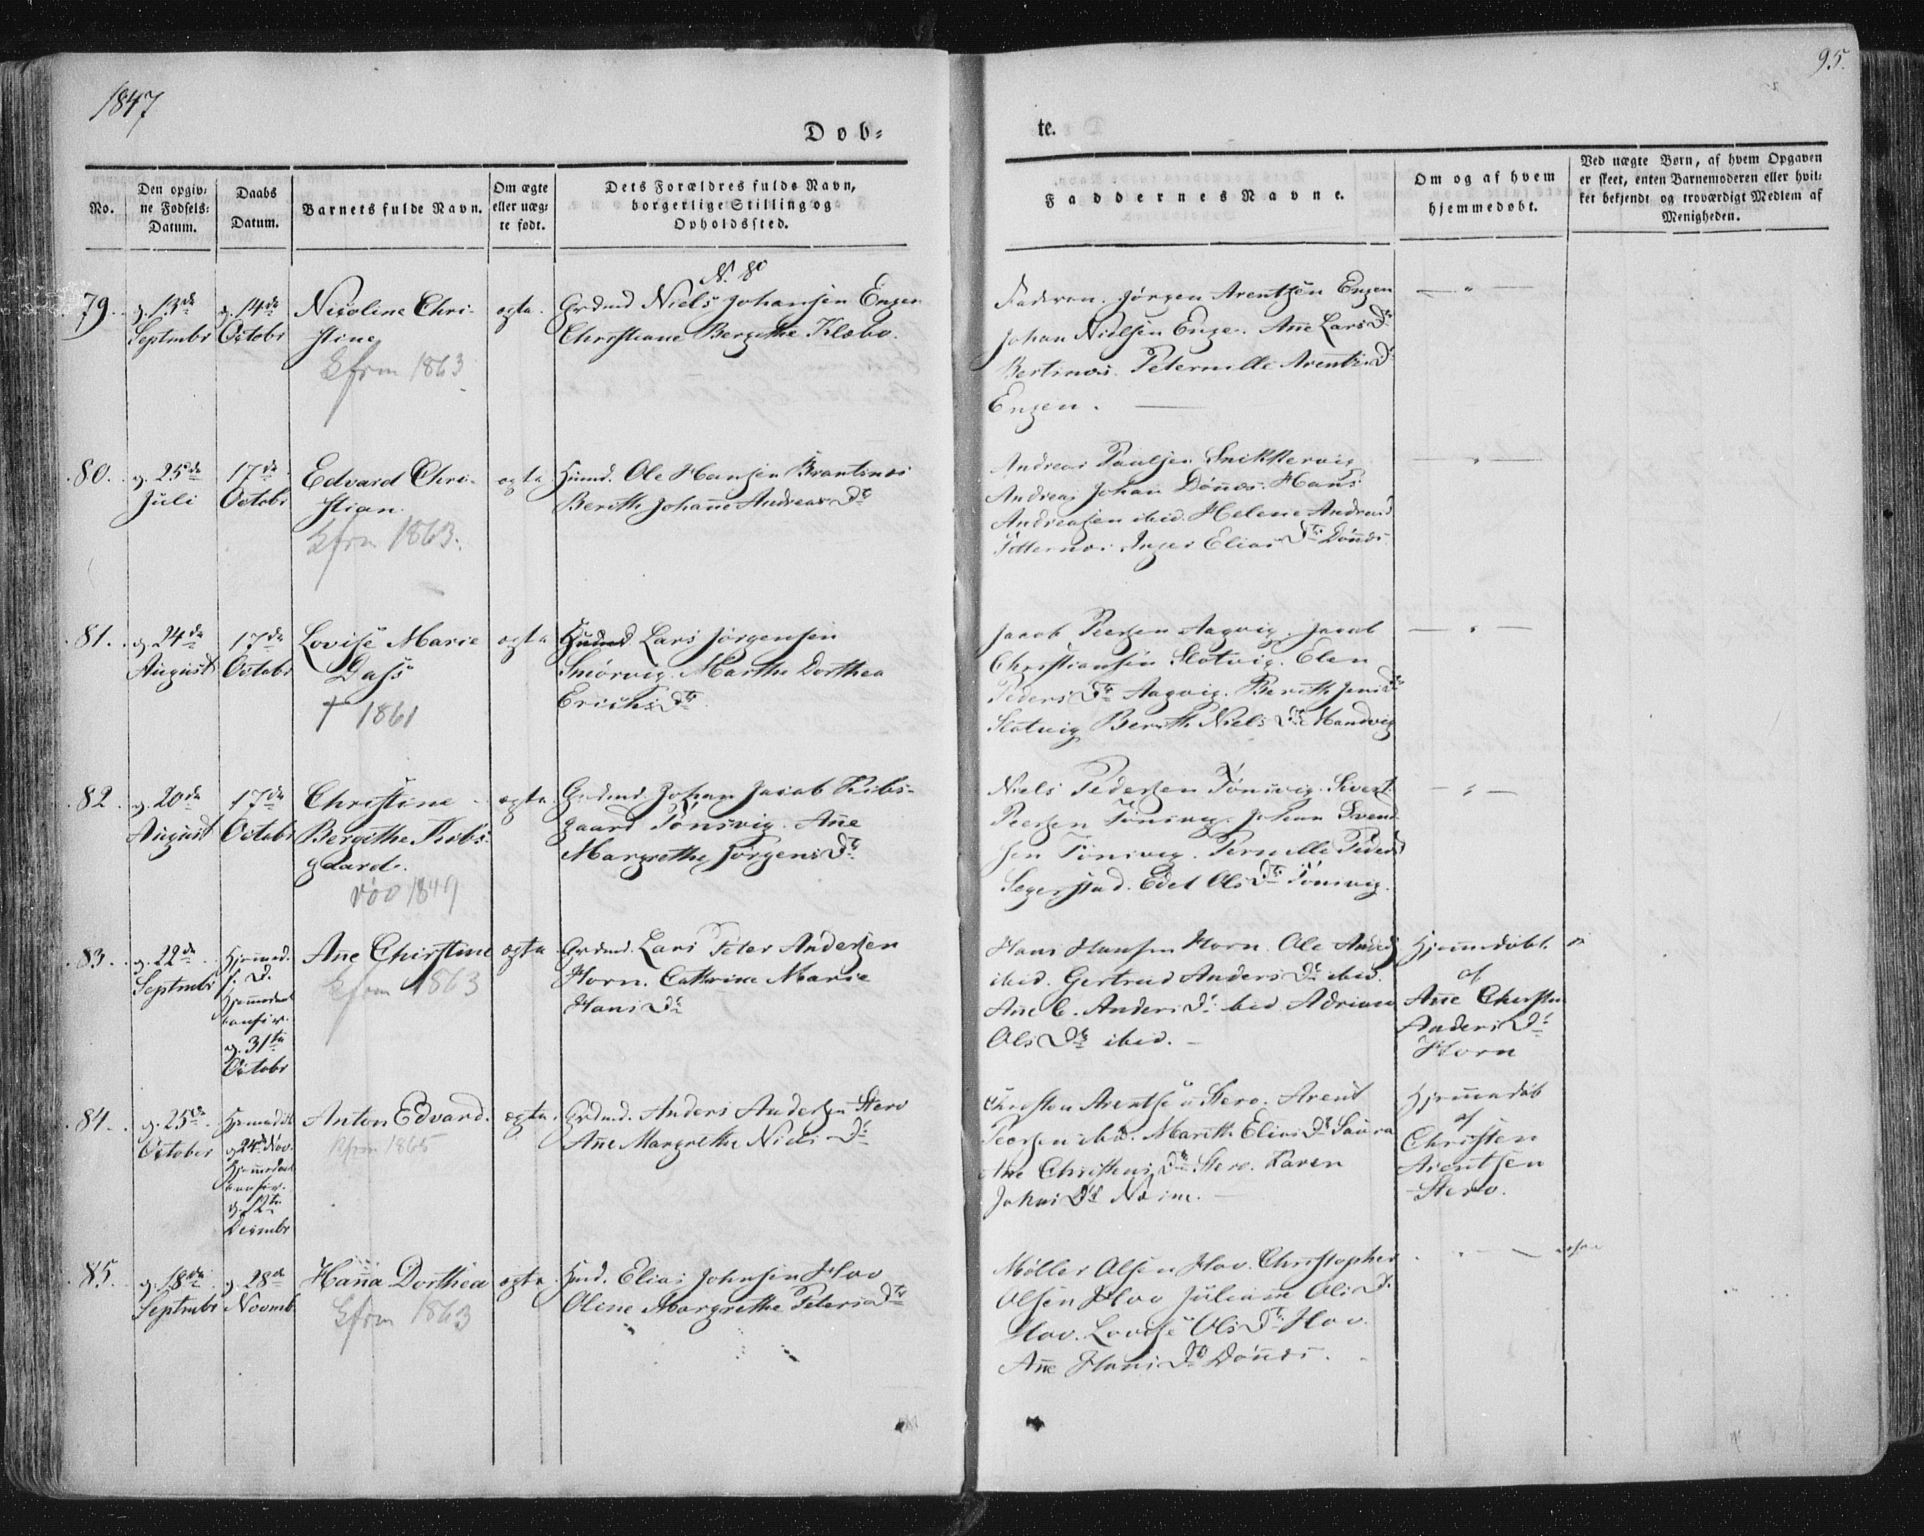 1847
95.
Døb=
te.
No.
Den opgiv=
ne Fødsels=
Datum.
Daabs
Datum.
Barnets fulde Navn.
Om ægte
eller uæg=
te født.
Dets Forældres fulde Navn,
borgerlige Stilling og
Opholdssted.
Faddernes Navne.
Om og af hvem
hjemmedøbt.
Ved uægte Børn, af hvem Opgaven
er skeet, enten Barnemoderen eller hvil=
ket bekjendt og troværdigt Medlem af
Menigheden.
79.
d. 13de
Septmbr
d. 14de
Octobr
Nicoline Chri-
stine
Kfrm 1863
ægte.
N. 80
Grdmd Niels Johansen Engen
Christiane Bergethe Klæbo.
Faderen. Jørgen Arentsen Engen
Johan Nielsen Enge. Ane Lars Dr
Bertines. Peternille Arents Dr
Engen.
80.
d. 25de
Juli
17de
Octobr
Edvard Chri-
stian.
Kfrm 1863.
ægte
Huusmd. Ole Hansen Brantsnes
Berith Johane Andreas Dr
Andreas Paulsen
Andreas Johan Dønnes. Hans
Andreasen ibid. Helene Andreas
Inger Elias Dr Dønnes.
81.
d. 24de
August
17de
Octobr
Lovise Marie
Dass
† 1861
ægte
Lars Jørgensen
Smørvig. Marthe Dorthea
Erichs Dr.
Jacob Peersen Aagvig. Jacob
Christiansen Slotvig. Elen
Peders Dr Aagvig. Berith Jens Dr
Slotvig Berith Niels Dr
82.
d. 20de
August
17de
Octobr
Christine
Bergethe Kibs-
gaard.
død 1849
ægte.
Grdmd. Johan Jacob Kibs-
gaard Tønsvig. Ane
Margrethe Jørgens Dr.
Niels Pedersen Tønsvig. Sivert
Peersen Tønsvig. Johan Svend-
sen Tønsvig. Pernille Peders
Segerstad. Edel Ols Dr Tønsvig.
83.
d. 22de
Septmbr
Hjemmed.
d. 31te
Octobr
Ane Christine
Kfrm 1863
ægte
Grdmd. Lars Peter Andersen
Horn. Cathrine Marie
Hans Dr
Hans Hansen Horn. Ole Anders
ibid. Gertrud Anders Dr ibid.
Ane C. Anders Dr ibid Adriane
Ols Dr ibid.
Hjemmedøbt
af
Ane Christine
Anders Dr
Horn
84.
d. 25de
October
Hjemmedøbt
d. 24de Nov.
d. 12te
Decmbr
Anton Edvard.
Kfrm 1865
ægte.
Grdmd. Anders Andersen Stero
Ane Margrethe Niels Dr
Christen Arentsen Stero. Arent
Peersen ibid. Marith Elias Dr Saura
Ane Christens Dr Stero. Karen
Johns Dr
Hjemmedøbt
af
Christen
Arentsen
Stero.
85.
d. 18de
Septmbr
d. 28de
Novmb
Hana Dorthea
Kfrm 1863
ægte.
Hmd. Elias Johnsen Hov
Oline Margrethe Peters Dr
Møller Olsen Hov. Christopher
Olsen Hov Juliane Ols Dr
Hov. Lovise Ols Dr Hov.
Ane Hans Dr Dønnes.